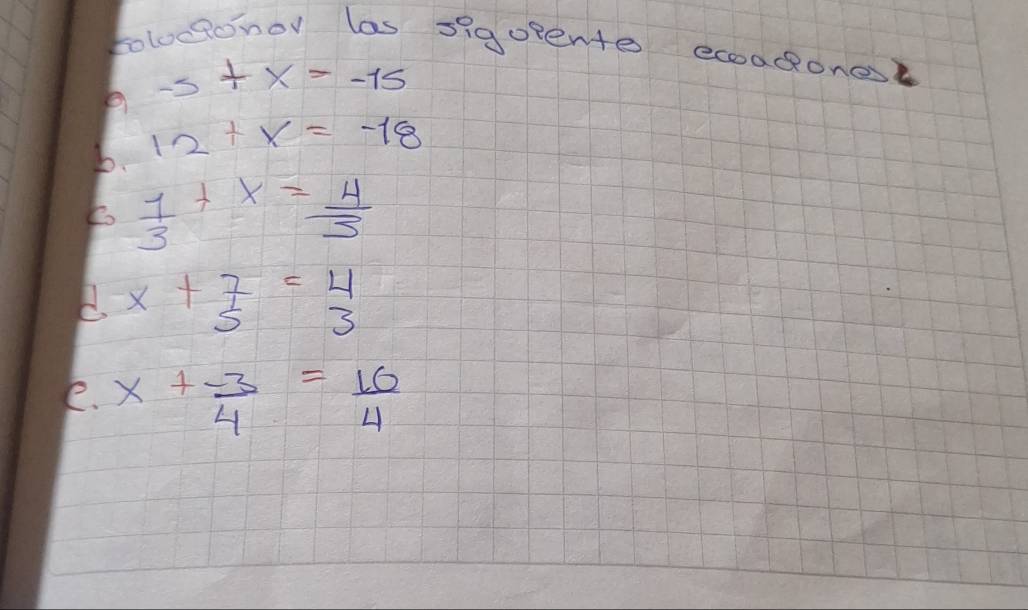 solucionar las siguiente ecuaciones
a -5 + x = -15
b. 12 + x = -18
c 1/3 + x = 4/3
d. x + 7/5 = 4/3
e. x + -3/4 = 16/4